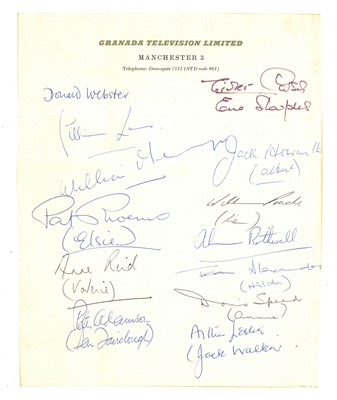 GRANADA TELEVISION LIMITED
MANCHESTER 3
Telephone: Deansgate 7211 (STD code 061)
Donald Webster
William
Pat Phoenix
(Elsie)
Anne Reid
(Valerie)
Peter Adamson
(Len Fairclough)
Jack Howarth
(Albert)
William Roache
(Ken)
Alan Rothwell
Jean Alexander
(Hilda)
Doris Speed
(Annie)
Arthur Leslie
(Jack Walker)